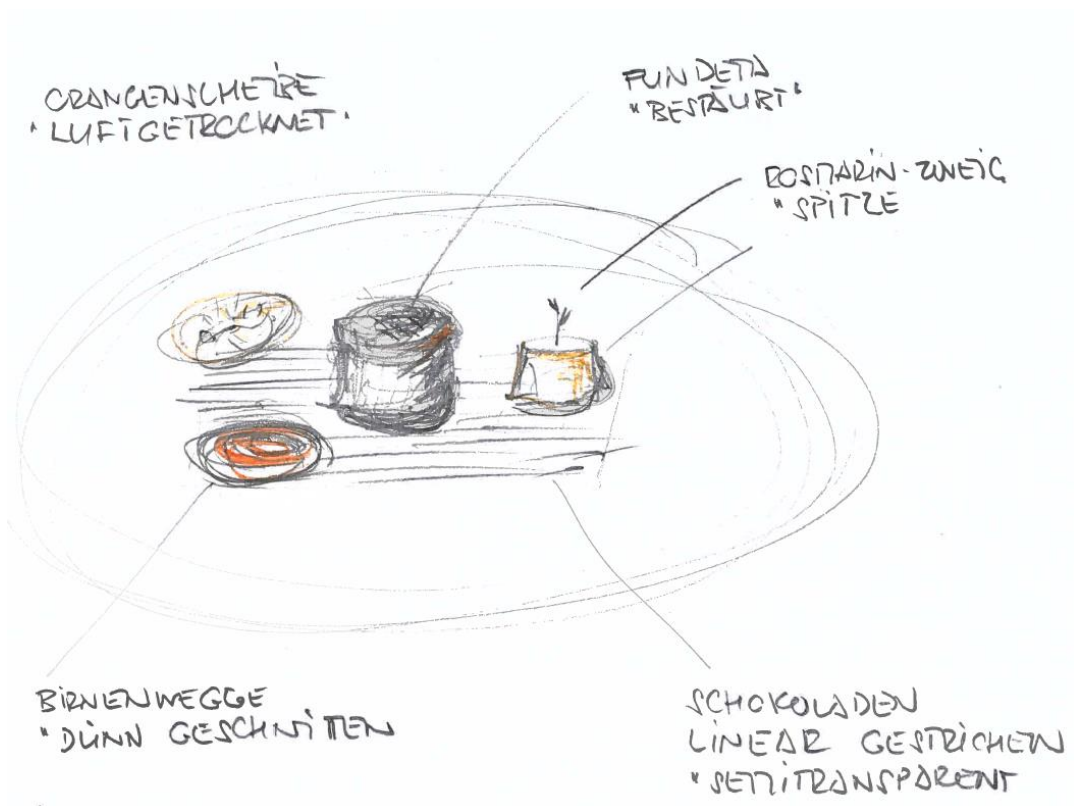 ORANGENSCHEIBE
"LUFTGETROCKNET"
FUNDETA
"BESTÄUBT"
ROSMARIN-ZWEIG
"SPITZE
BIRNENWEGGE
"DÜNN GESCHNITTEN
SCHOKOLADEN
LINEAR GESTRICHEN
"SEMITRANSPARENT